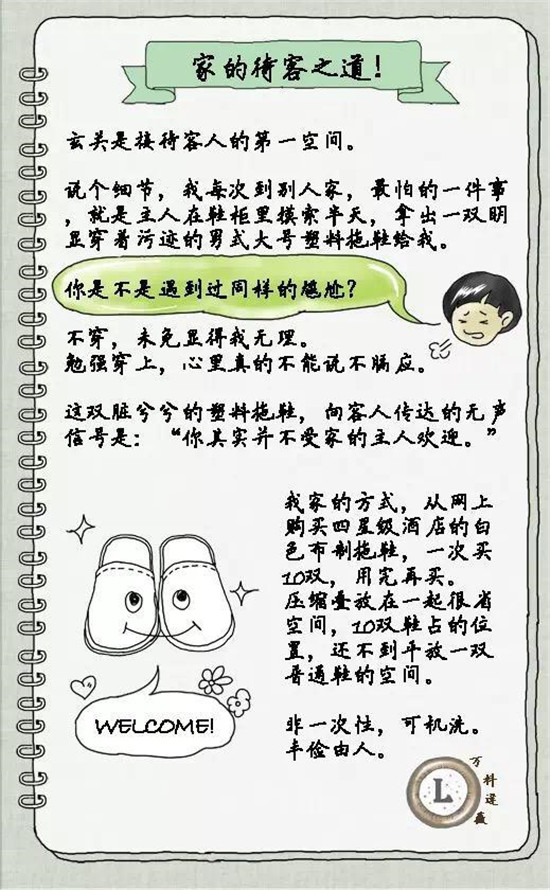 家的待客之道!
玄关是接待客人的第一空间。
说个细节，我每次到别人家，最怕的一件事
，就是主人在鞋柜里摸索半天，拿出一双明
显穿着污迹的男式大号塑料拖鞋给我。
你是不是遇到过同样的尴尬？
不穿，未免显得我无理。
勉强穿上，心里真的不能说不膈应。
这双脏兮兮的塑料拖鞋，向客人传达的无声
信号是：“你其实并不受家的主人欢迎。”
我家的方式，从网上
购买四星级酒店的白
色布制拖鞋，一次买
10双，用完再买。
压缩叠放在一起很省
空间，10双鞋占的位
置，还不到平放一双
普通鞋的空间。
非一次性，可机洗。
丰俭由人。
WELCOME!
L
万科逯薇